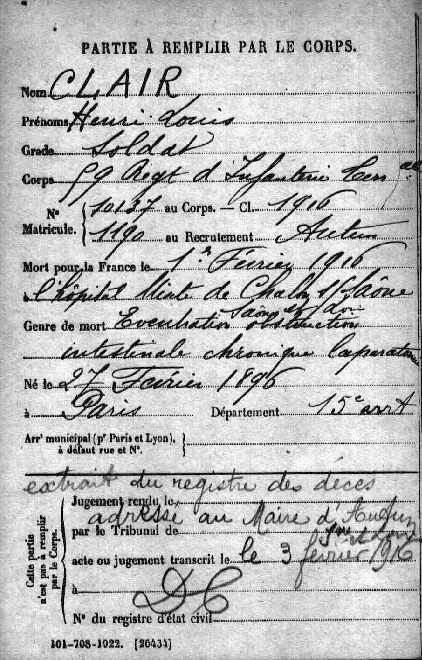 PARTIE À REMPLIR PAR LE CORPS.
Nom CLAIR
Prénoms Henri Louis
Grade Soldat
Corps 59 Regt d'Infanterie
N° Matricule. { 10137 au Corps. — Cl. 1916
1190 au Recrutement Autun
Mort pour la France le 1er Février 1916
à l'hôpital Mixte de Chalon s/ Saône
Saône et
Genre de mort Eventration obstruction
intestinale chronique laparatomie
Né le 27 Février 1896
à Paris Département 15e arrt
Arrt municipal (pr Paris et Lyon), à défaut rue et N°. {
extrait du registre des décès
Cette partie n'est pas à remplir par le Corps.
Jugement rendu le
adressé au Maire d'
par le Tribunal de
acte ou jugement transcrit le le 3 février 1916
à
N° du registre d'état civil
101-708-1922. [26434]